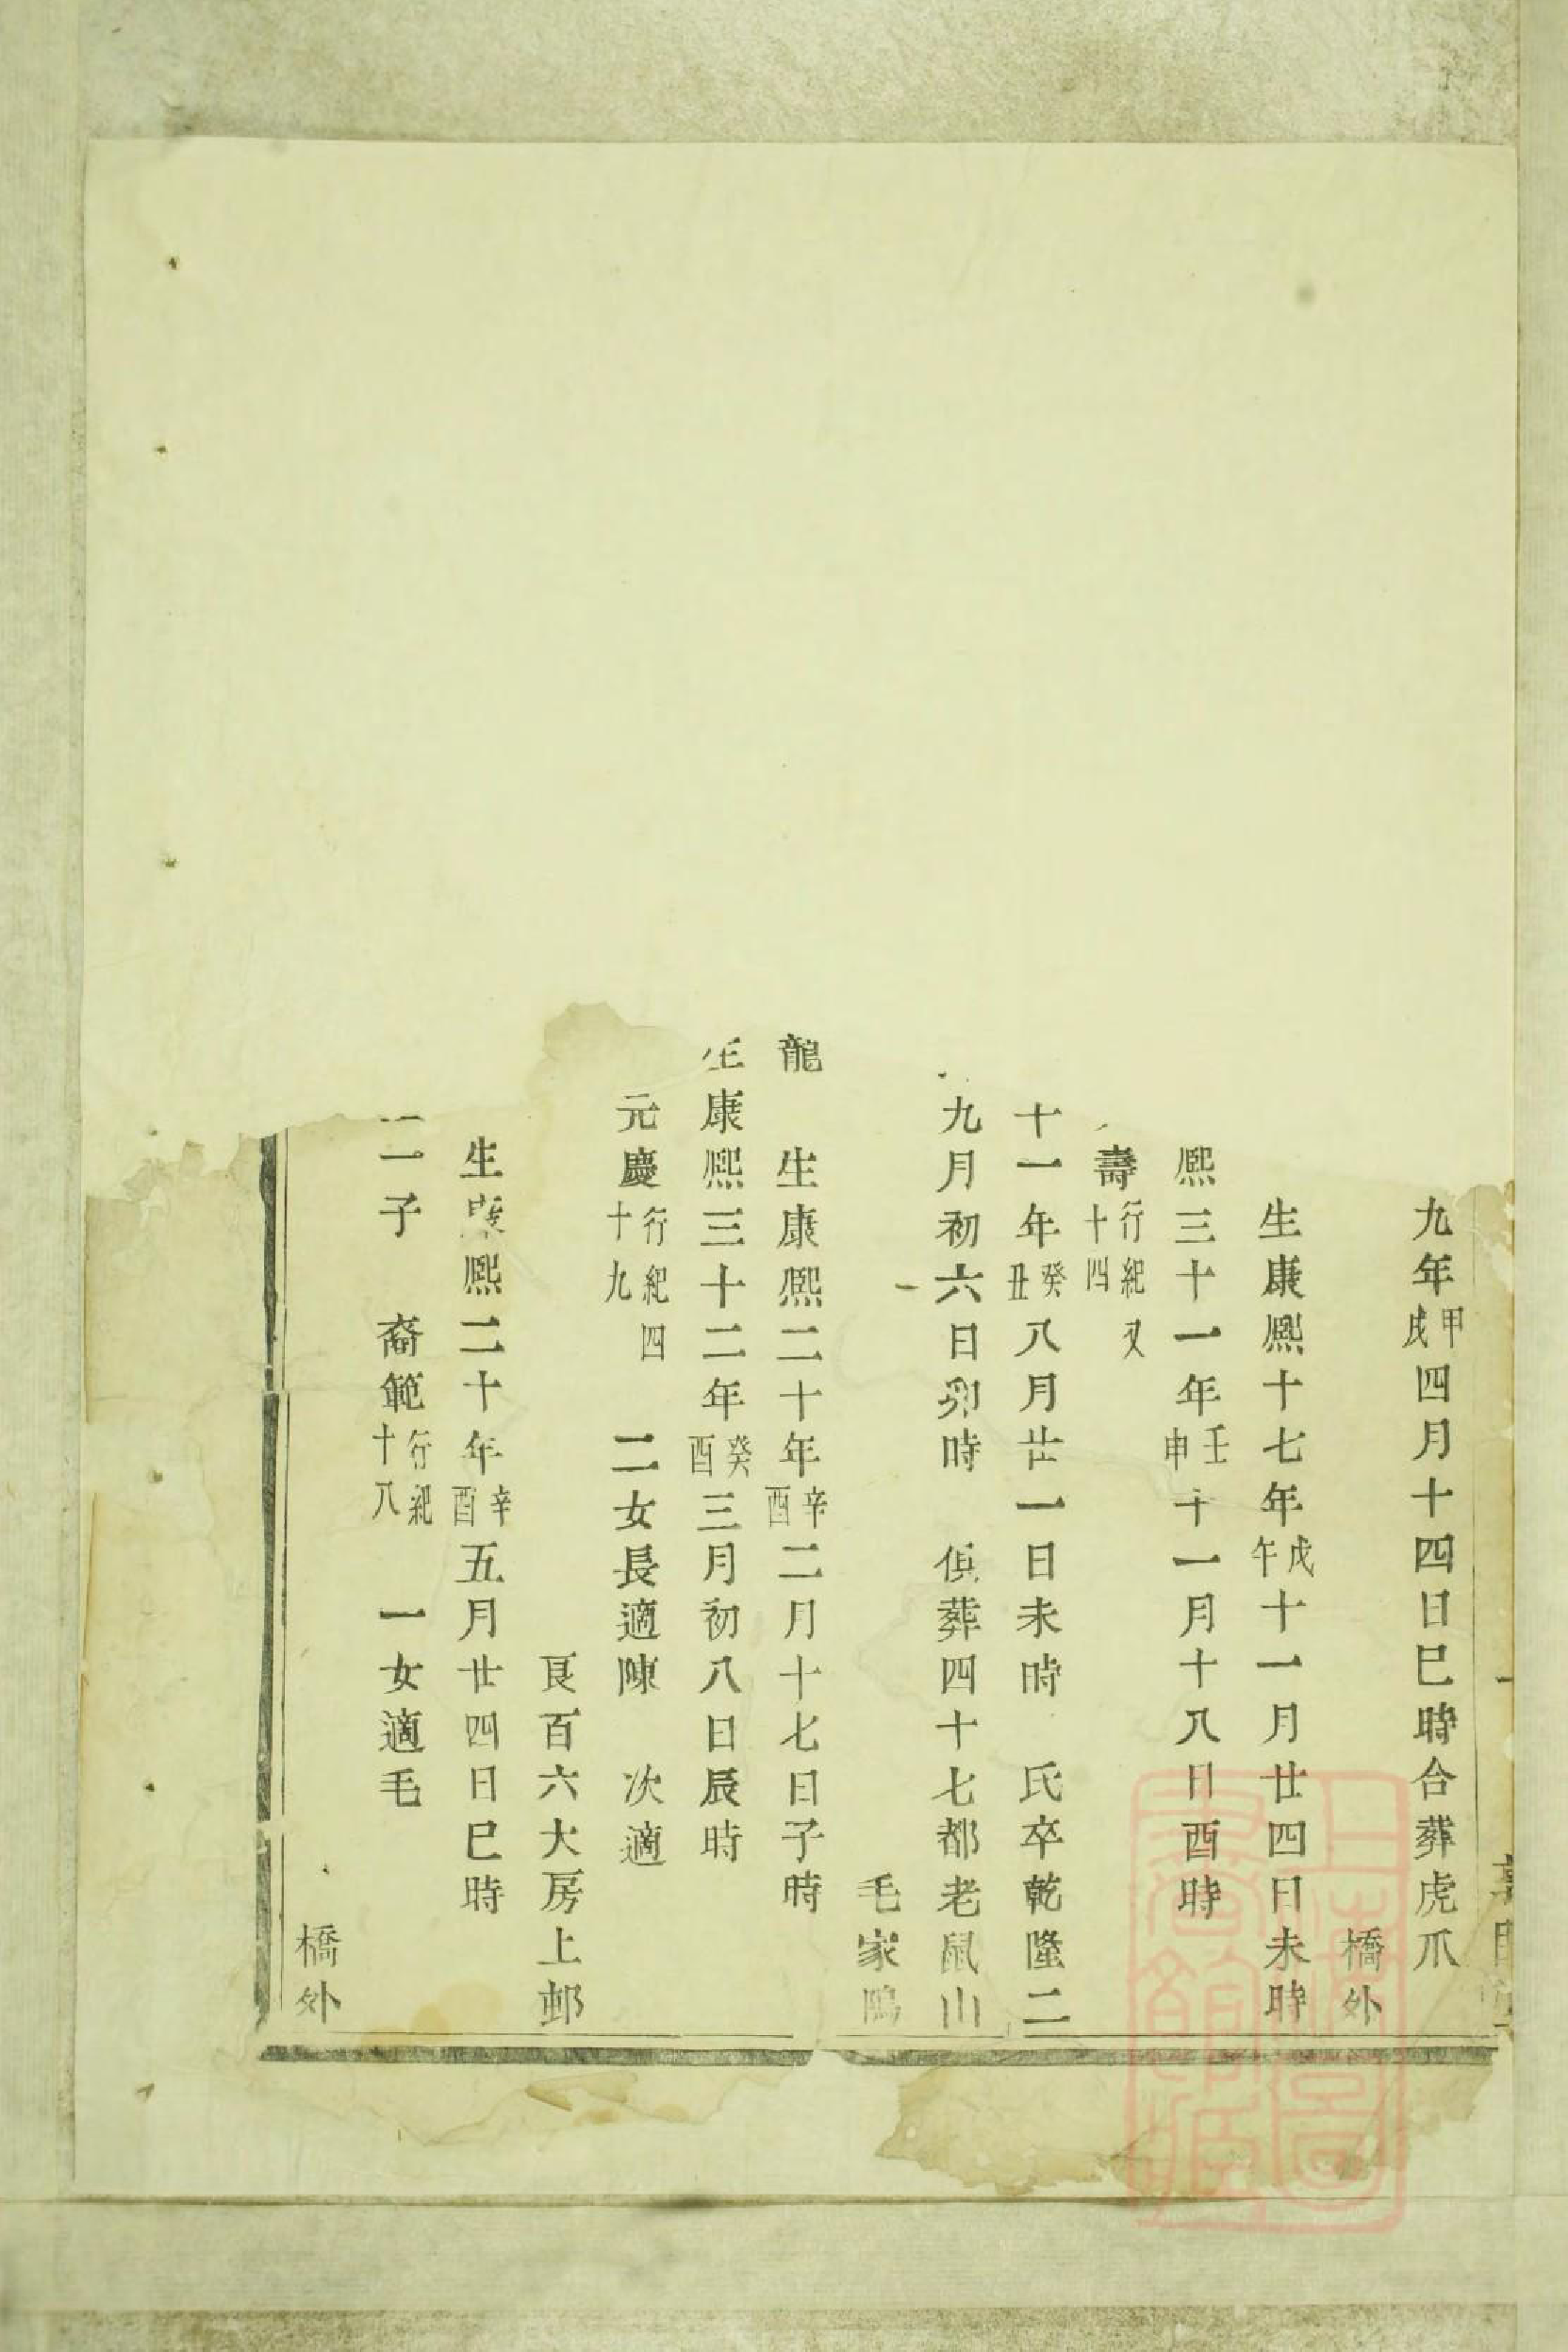 九年甲戌四月十四日巳時合葬虎爪
橋外
生康熙十七年戊午十一月廿四日未時
熙三十一年壬申十一月十八日酉時
壽行紀又十四
十一年癸丑八月廿一日未時 氏卒乾隆二
九月初六日卯時 偵葬四十七都老鼠山
毛家鴎
龍 生康熙二十年辛酉二月十七日子時
生康熙三十二年癸酉三月初八日辰時
元慶行紀四十九 二女長適陳 次適
艮百六大房上邨
生康熙二十年辛酉五月廿四日巳時
二子 裔範行紀十八 一女適毛
橋外